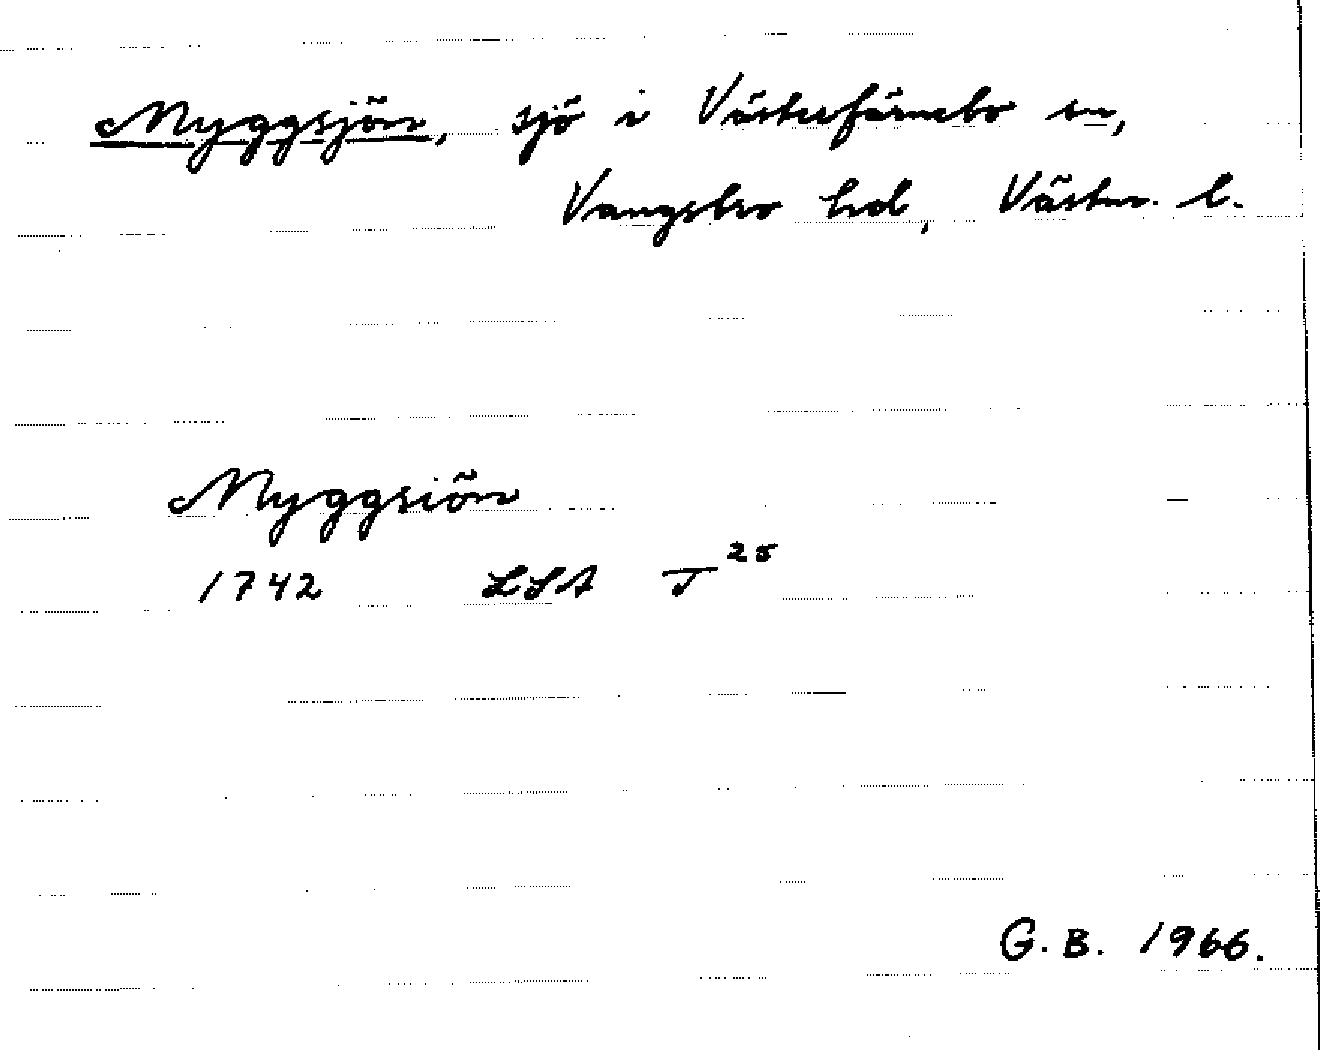 Myggsjön, sjö i Västerfärnebo sn,
Vangsbro hd, Västm. l.
Myggsiön
1742 LSA T 25
G. B. 1966.